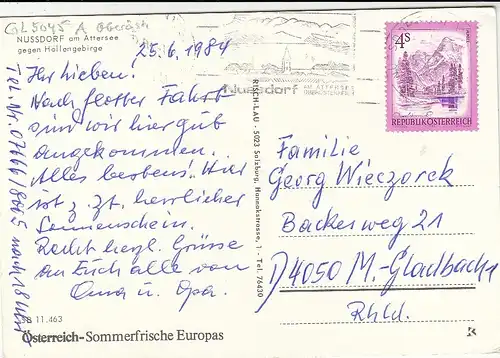 GL5045 A Oberöst.
NUSSDORF am Attersee
gegen Höllengebirge
25.6.1984
Ihr Lieben.
Nach flotter Fahrt
sind wir hier gut
angekommen.
Alles bestens! Hier
ist z. zt. herrlicher
Sonnenschein.
Recht herzl. Grüsse
an Euch alle von
Oma u. Opa.
Tel. Nr. 07666/8065 nach 18 Uhr
B 11.463
Österreich-Sommerfrische Europas
RISCH-LAU - 5023 Salzburg, Hannakstrasse, 1 - Tel. 76430
Nussdorf AM ATTERSEE
OBERÖSTERREICH
4S
REPUBLIK ÖSTERREICH
Familie
Georg Wieczorek
Backesweg 21
D4050 M.-Gladbach
Rhld.
K